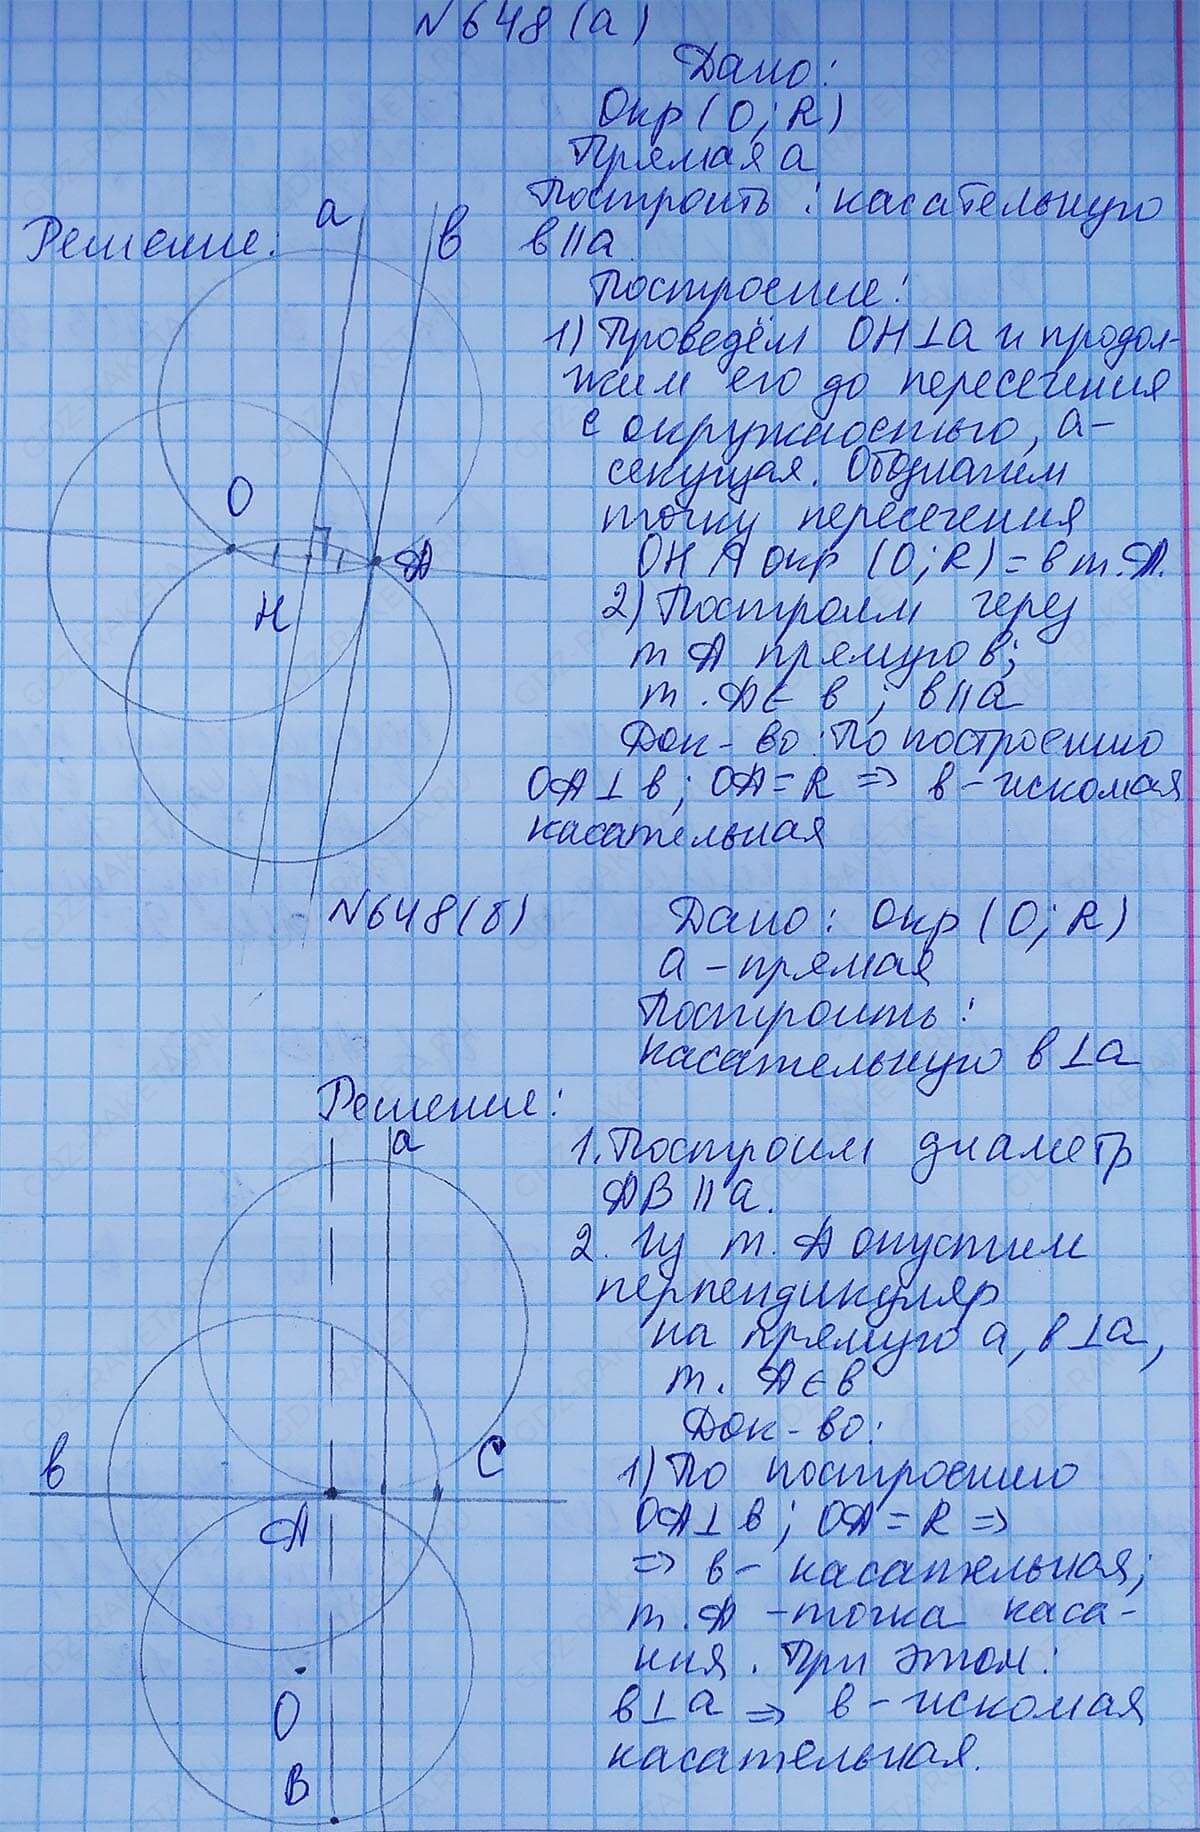 N648(а)
Дано:
Окр(O;R)
Прямая а
Построить: касательную
в||а
Решение:
а
в
O
H
A
Построение:
1) Проведём OH⊥а и продол-
жим его до пересечения
с окружностью, а-
секущая. Обозначим
точку пересечения
OH ∩ окр (O;R) = в т.А.
2) Построим через
т А прямую в;
т. А∈ в ; в||а
Док-во: По построению
OA⊥в; OA=R => в - искомая
касательная
N648(б)
Дано: Окр(O;R)
а - прямая
Построить:
касательную в⊥а
Решение:
а
в
С
A
O
B
1. Построим диаметр
AB||а.
2. Из т. А опустим
перпендикуляр
на прямую а, в⊥а,
т. А∈в
Док-во:
1) По построению
OA⊥в; OA=R =>
=> в - касательная;
т. А - точка каса-
ния. При этом:
в⊥а => в - искомая
касательная.